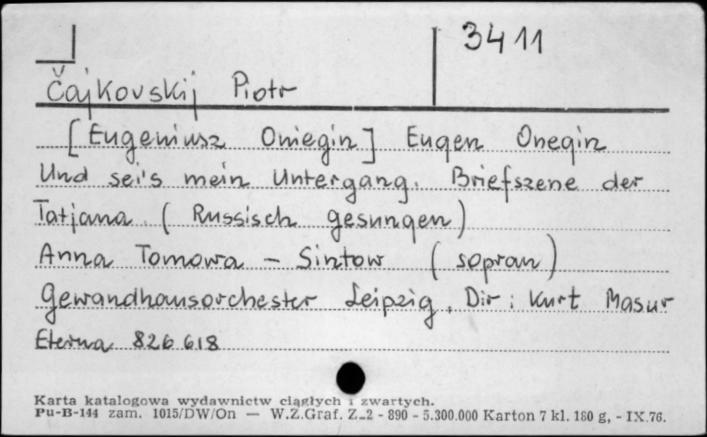 3411
Čajkovskij Piotr
[Eugeniusz Oniegin] Eugen Onegin
Und sei's mein Untergang. Briefszene der
Tatjana (Russisch gesungen)
Anna Tomowa - Sintow (sopran)
Gewandhausorchester Leipzig, Dir: Kurt Masur
Eterna 826 618
Karta katalogowa wydawnictw ciągłych i zwartych.
Pu-B-144 zam. 1015/DW/On — W.Z.Graf. Z-2 - 890 - 5.300.000 Karton 7 kl. 180 g, - IX.76.